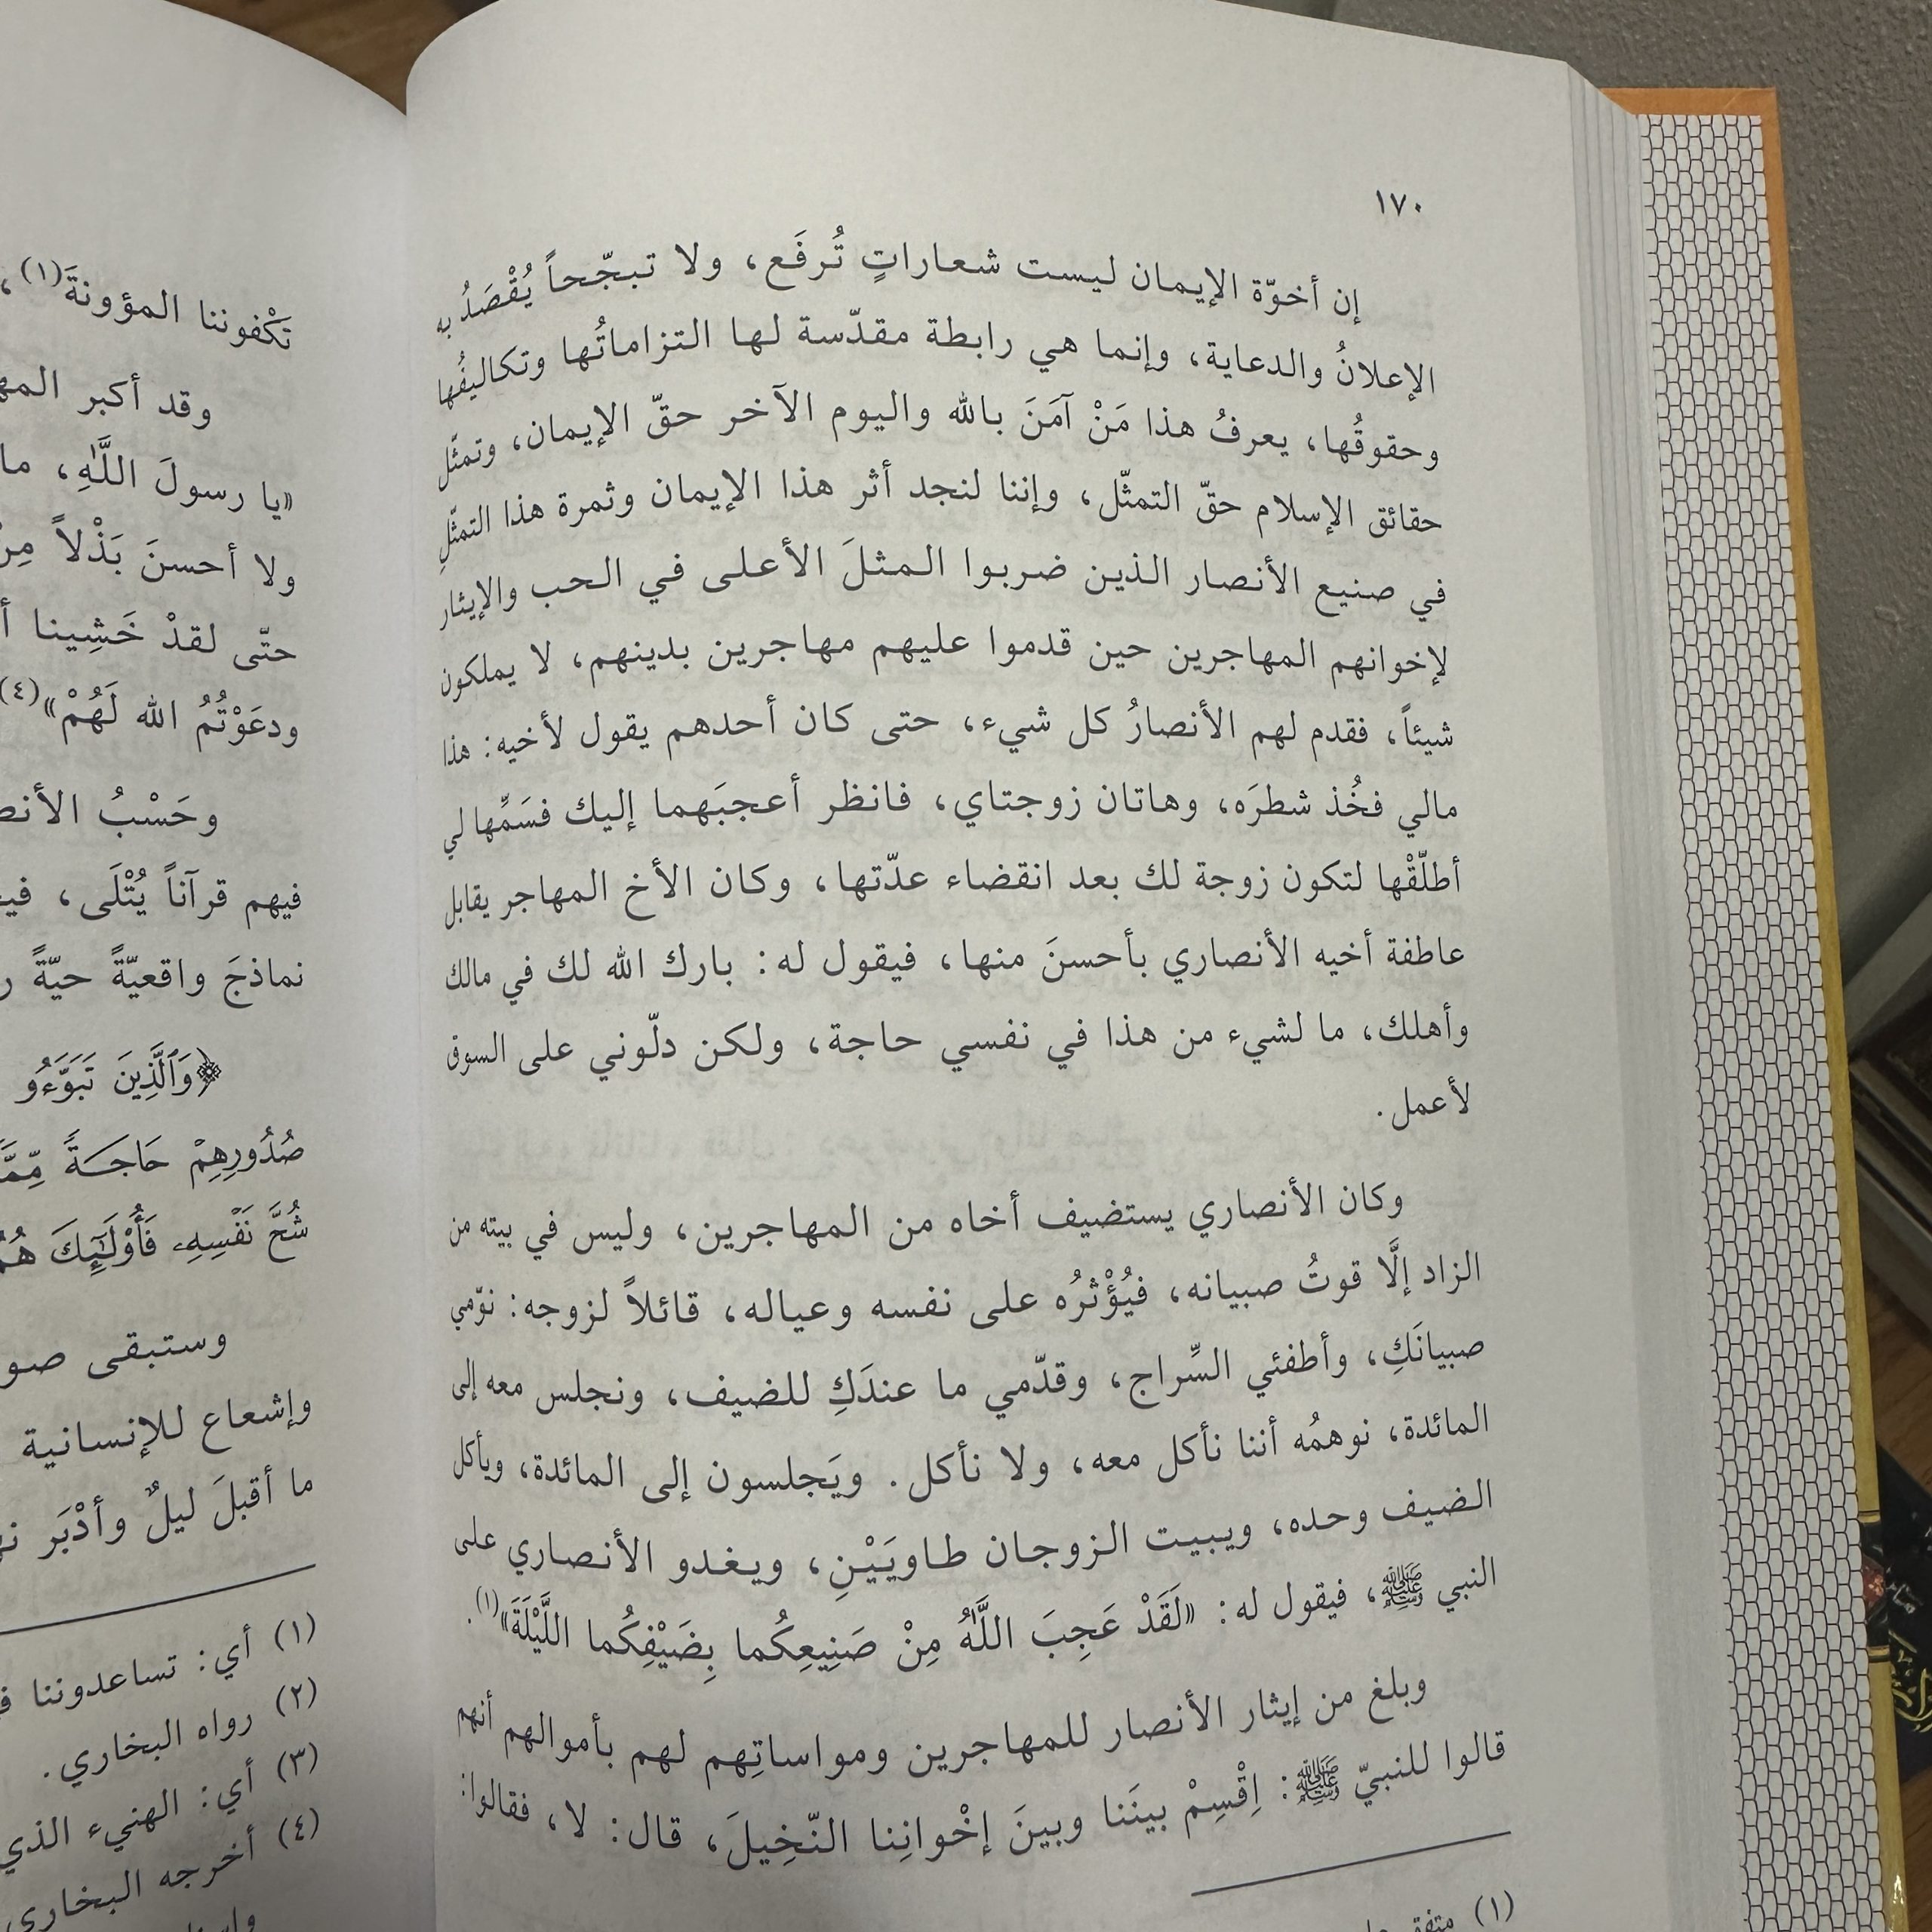 ١٧٠
إن أخوّة الإيمان ليست شعاراتٍ تُرفَع، ولا تبجّحاً يُقْصَدُ به
الإعلانُ والدعاية، وإنما هي رابطة مقدّسة لها التزاماتُها وتكاليفُها
وحقوقُها، يعرفُ هذا مَنْ آمَنَ بالله واليوم الآخر حقّ الإيمان، وتمثّل
حقائق الإسلام حقّ التمثّل، وإننا لنجد أثر هذا الإيمان وثمرة هذا التمثّلِ
في صنيع الأنصار الذين ضربوا المثلَ الأعلى في الحب والإيثار
لإخوانهم المهاجرين حين قدموا عليهم مهاجرين بدينهم، لا يملكون
شيئاً، فقدم لهم الأنصارُ كل شيء، حتى كان أحدهم يقول لأخيه: هذا
مالي فخُذ شطرَه، وهاتان زوجتاي، فانظر أعجبَهما إليك فسَمِّها لي
أطلّقْها لتكون زوجة لك بعد انقضاء عدّتها، وكان الأخ المهاجر يقابل
عاطفة أخيه الأنصاري بأحسنَ منها، فيقول له: بارك الله لك في مالك
وأهلك، ما لشيء من هذا في نفسي حاجة، ولكن دلّوني على السوق
لأعمل.
وكان الأنصاري يستضيف أخاه من المهاجرين، وليس في بيته من
الزاد إلَّا قوتُ صبيانه، فيُؤْثرُه على نفسه وعياله، قائلاً لزوجه: نوّمي
صبيانَكِ، وأطفئي السِّراج، وقدّمي ما عندَكِ للضيف، ونجلس معه إلى
المائدة، نوهمُه أننا نأكل معه، ولا نأكل. ويَجلسون إلى المائدة، ويأكل
الضيف وحده، ويبيت الزوجان طاويَيْنِ، ويغدو الأنصاري على
النبي ﷺ، فيقول له: «لَقَدْ عَجِبَ اللَّهُ مِنْ صَنِيعِكُما بِضَيْفِكُما اللَّيْلَةَ»(١).
وبلغ من إيثار الأنصار للمهاجرين ومواساتِهم لهم بأموالهم أنهم
قالوا للنبيّ ﷺ: اِقْسِمْ بينَنا وبينَ إخْوانِنا النّخِيلَ، قال: لا، فقالوا:
(١) متفق
تَكْفوننا المؤونةَ(١)،
وقد أكبر
«يا رسولَ اللَّهِ، ما
ولا أحسنَ بَذْلاً
حتّى لقدْ خَشِينا
ودعَوْتُمُ الله لَهُمْ»(٤)
وحَسْبُ
فيهم قرآناً يُتْلَى،
نماذجَ واقعيّةً حيّةً
﴿وَٱلَّذِينَ تَبَوَّءُو
صُدُورِهِمْ حَاجَةً
شُحَّ نَفْسِهِۦ فَأُوْلَٰٓئِكَ
وستبقى
وإشعاع للإنسانية
ما أقبلَ ليلٌ وأدْبَر
(١) أي: تساعدوننا
(٢) رواه البخاري.
(٣) أي: الهنيء الذي
(٤) أخرجه البخاري